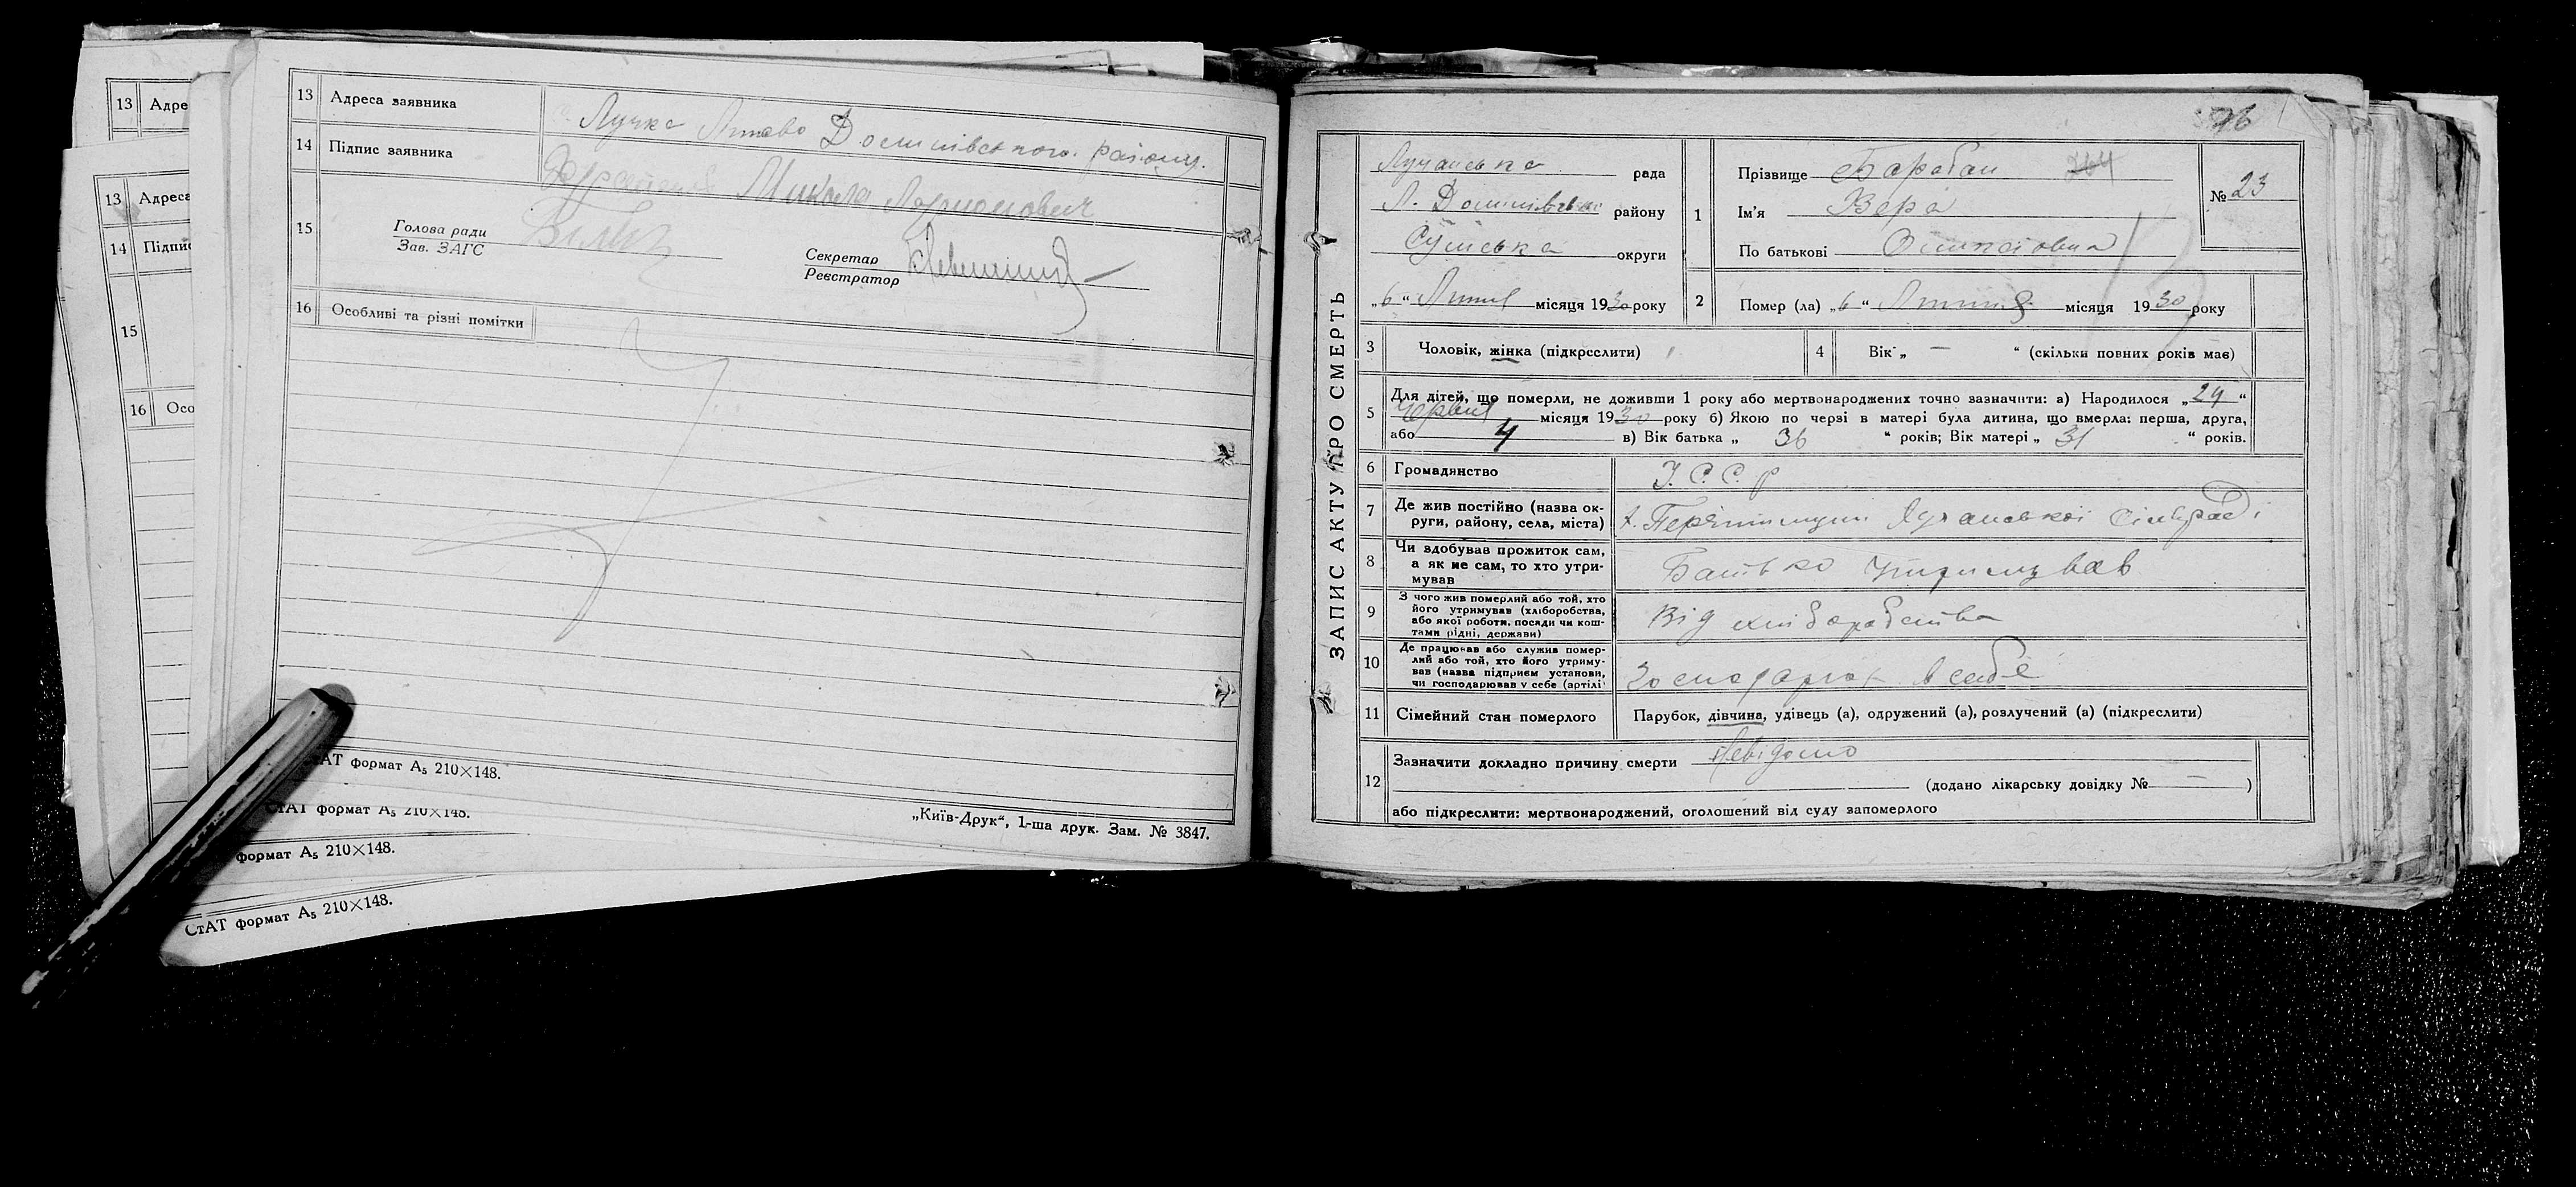 13 Адре
13 Адреса
14 Підпис
15
16 Осо
13 Адреса заявника Лучка Липово Долинівського району.
14 Підпис заявника Микола Ларионович
15 Голова ради
Зав. ЗАГС
Секретар
Реєстратор
16 Особливі та різні помітки
СтАТ формат А5 210×148.
СтАТ формат А5 210×148.
формат А5 210×148.
СтАТ формат А5 210×148.
„Київ-Друк“, 1-ша друк. Зам. № 3847.
76
ЗАПИС АКТУ ПРО СМЕРТЬ
Лучанська рада
Л. Долинівського району
Сумська округи
„6“ Липня місяця 1930 року
1 Прізвище Барабан 264
Ім'я Вера
По батькові
№ 23
2 Помер (ла) „6“ Липня місяця 1930 року
3 Чоловік, жінка (підкреслити)
4 Вік „ — “ (скільки повних років має)
5 Для дітей, що померли, не доживши 1 року або мертвонароджених точно зазначити: а) Народилося „24“
Червня місяця 1930 року б) Якою по черзі в матері була дитина, що вмерла: перша, друга,
або 4 в) Вік батька „ 36 “ років; Вік матері „ 31 “ років.
6 Громадянство У.С.С.Р
7 Де жив постійно (назва округи, району, села, міста) х. Лучанської сільради
8 Чи здобував прожиток сам,
а як не сам, то хто утри-
мував Батько утримував
9 З чого жив померлий або той, хто
його утримував (хліборобства,
або якої роботи, посади чи кош-
тами рідні, держави) Від хліборобства
10 Де працював або служив помер-
лий або той, хто його утриму-
вав (назва підприєм установи,
чи господарював у себе (артілі) Господарює в себе
11 Сімейний стан померлого Парубок, дівчина, удівець (а), одружений (а), розлучений (а) (підкреслити)
12 Зазначити докладно причину смерти Невідомо
(додано лікарську довідку № — )
або підкреслити: мертвонароджений, оголошений від суду запомерлого